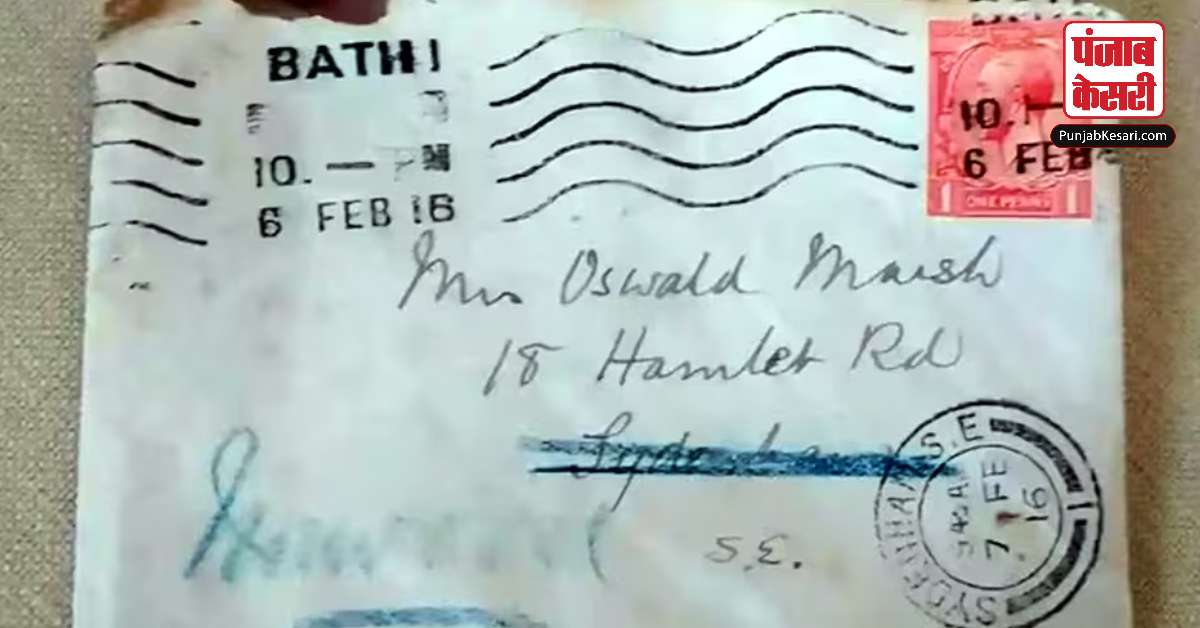 BATH 1
10. —
6 FEB 16
10. —
6 FEB
ONE PENNY
1 1
पंजाब
केसरी
PunjabKesari.com
Mrs Oswald Marsh
18 Hamlet Rd
Sydenham
S.E.
SYDENHAM S.E. 1
7 FE
16